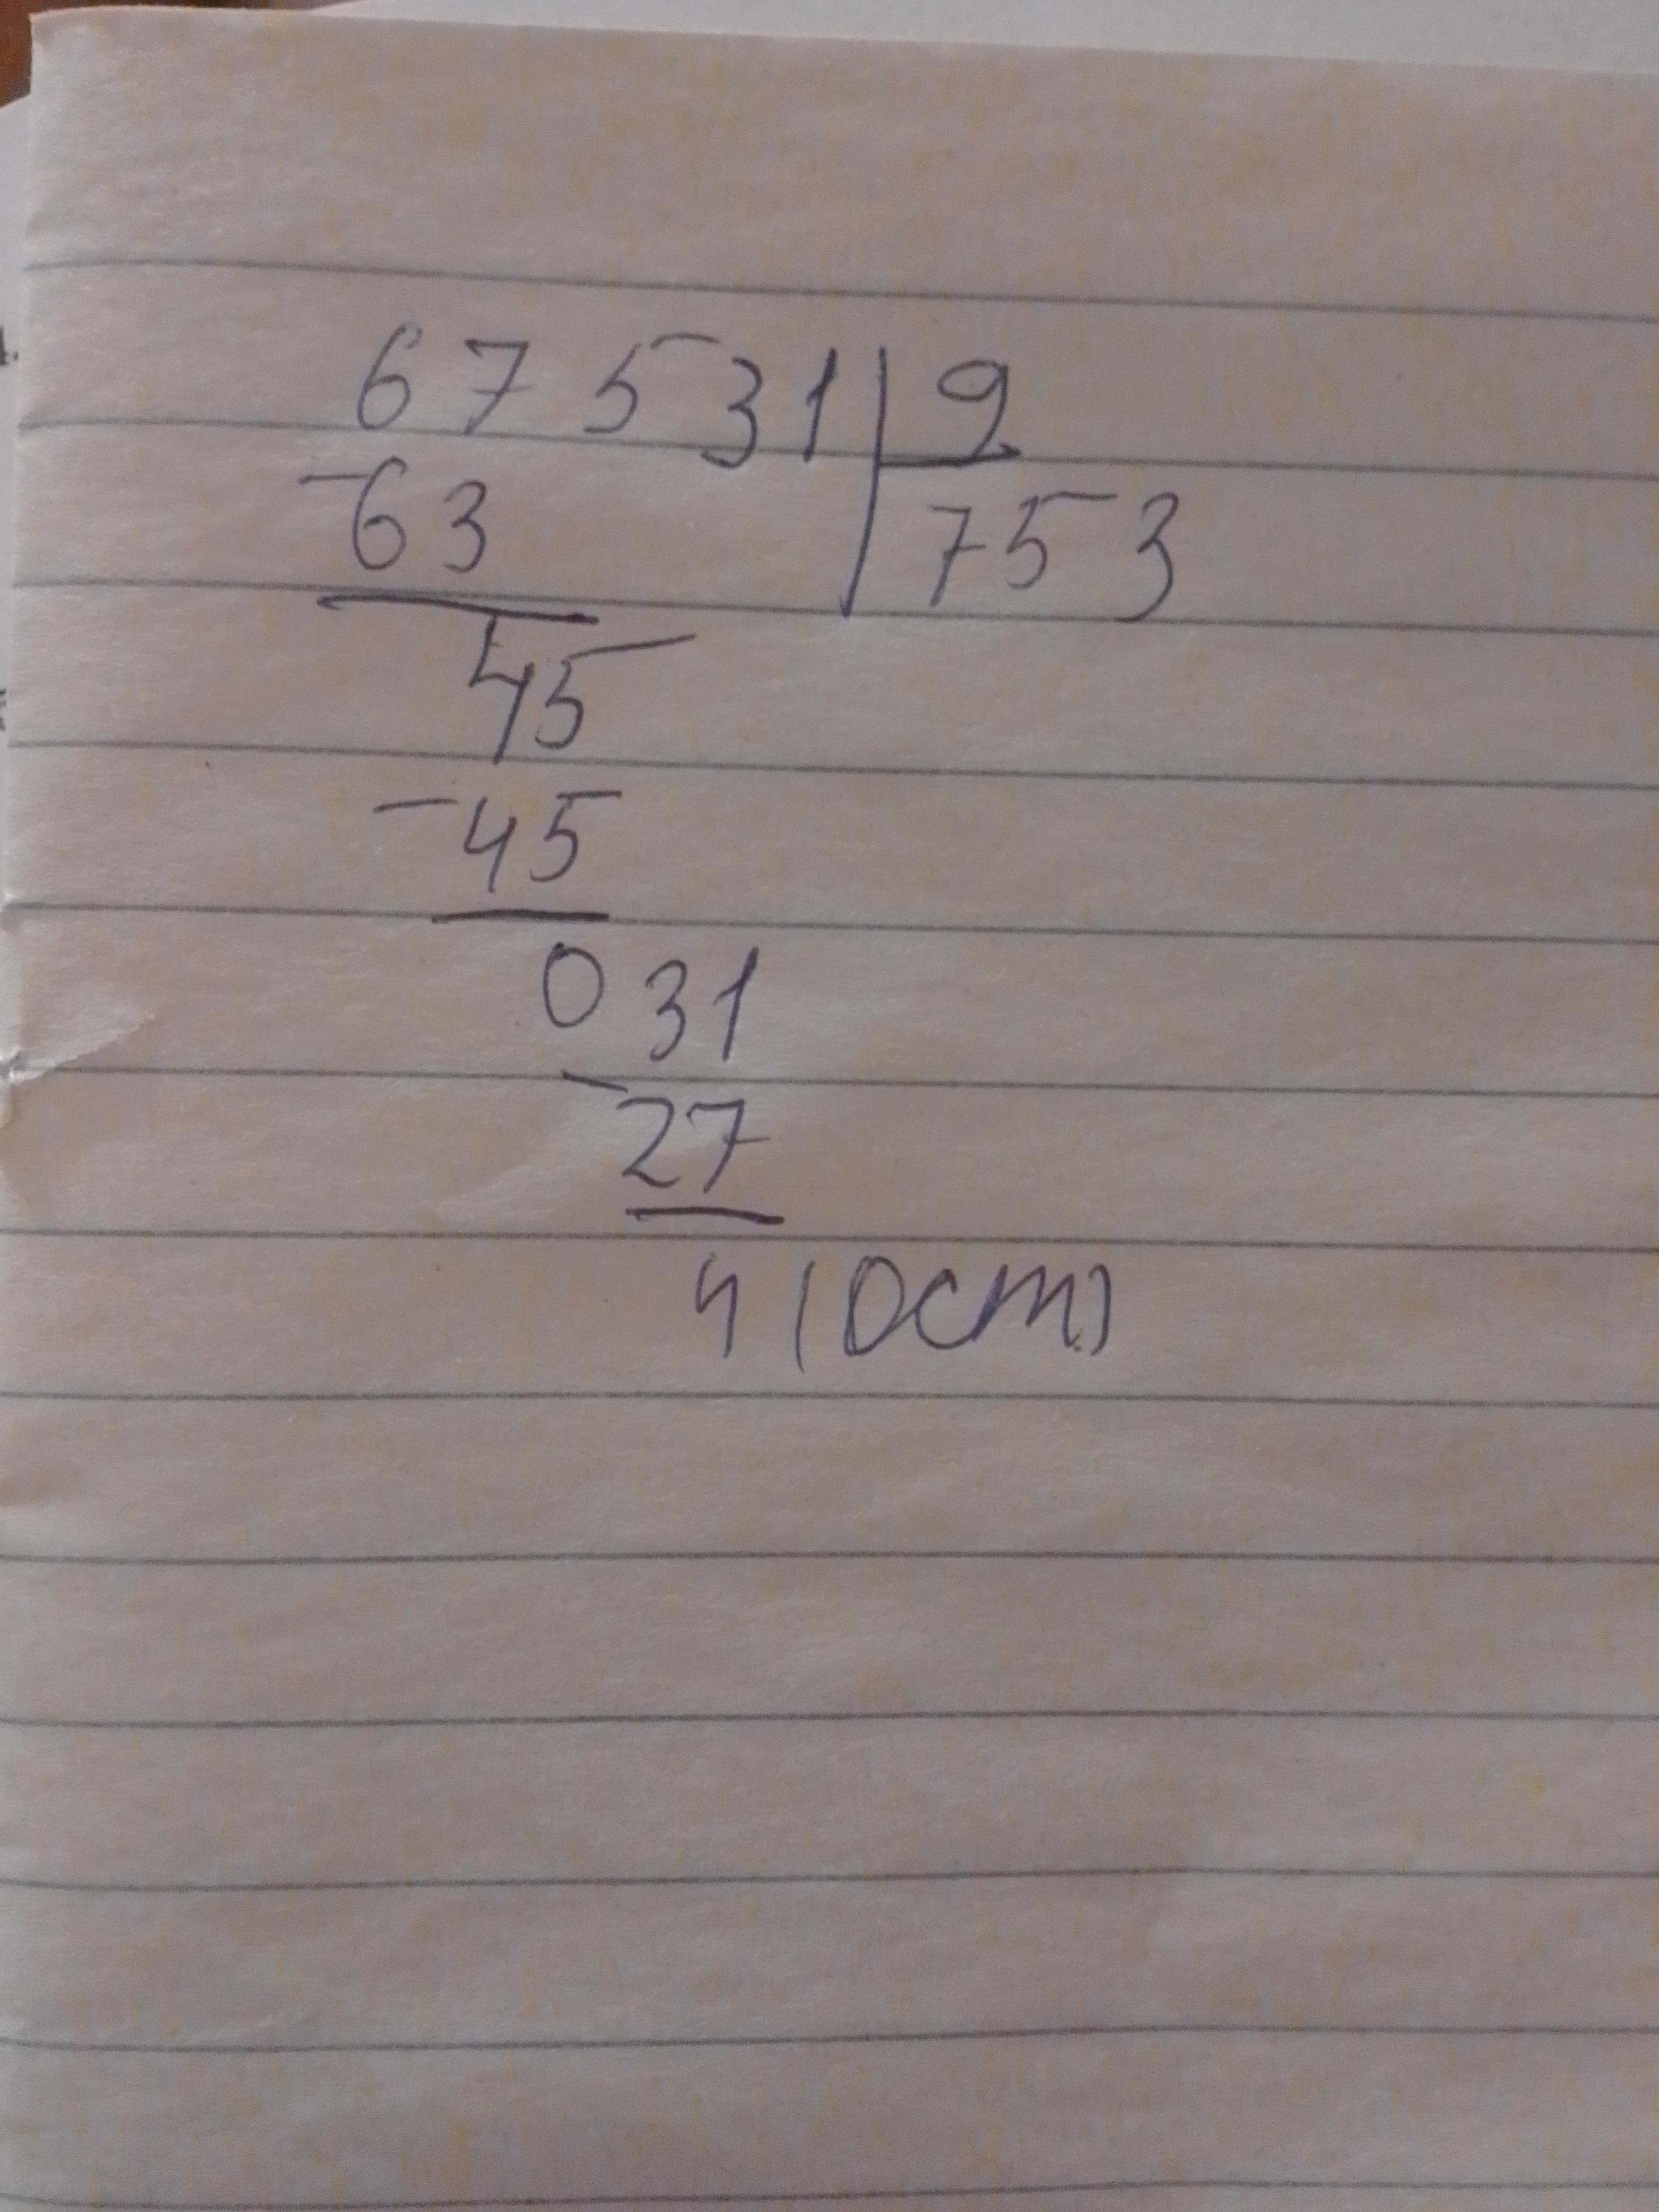 67531|9
-63 |753
45
-45
031
-27
4 (Ост)